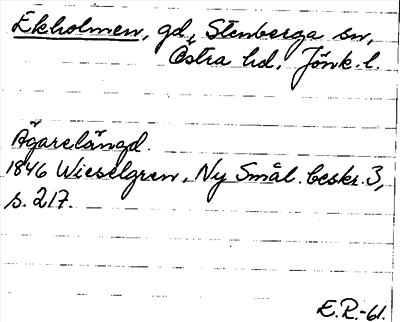 Ekholmen, gd, Stenberga sn,
Östra hd, Jönk. l.
Ägarelängd.
1846 Wieselgren, Ny Smål. beskr. 3,
s. 217.
E.R.-61.